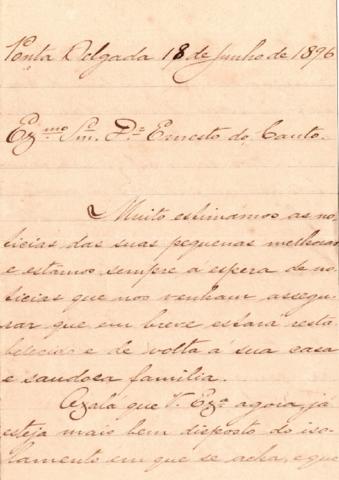 Ponta Delgada 18 de Junho de 1896
Exmo Snr. Dr. Ernesto do Canto.
Muito estimamos as no-
ticias das suas pequenas melhoras
e estamos sempre á espera de no-
ticias que nos venham assegu-
rar que em breve estará resta
belecido e de volta á sua casa
e saudoza familia.
Oxala que V. Exa agora, já
esteja mais bem disposto do iso-
lamento em que se acha, e que